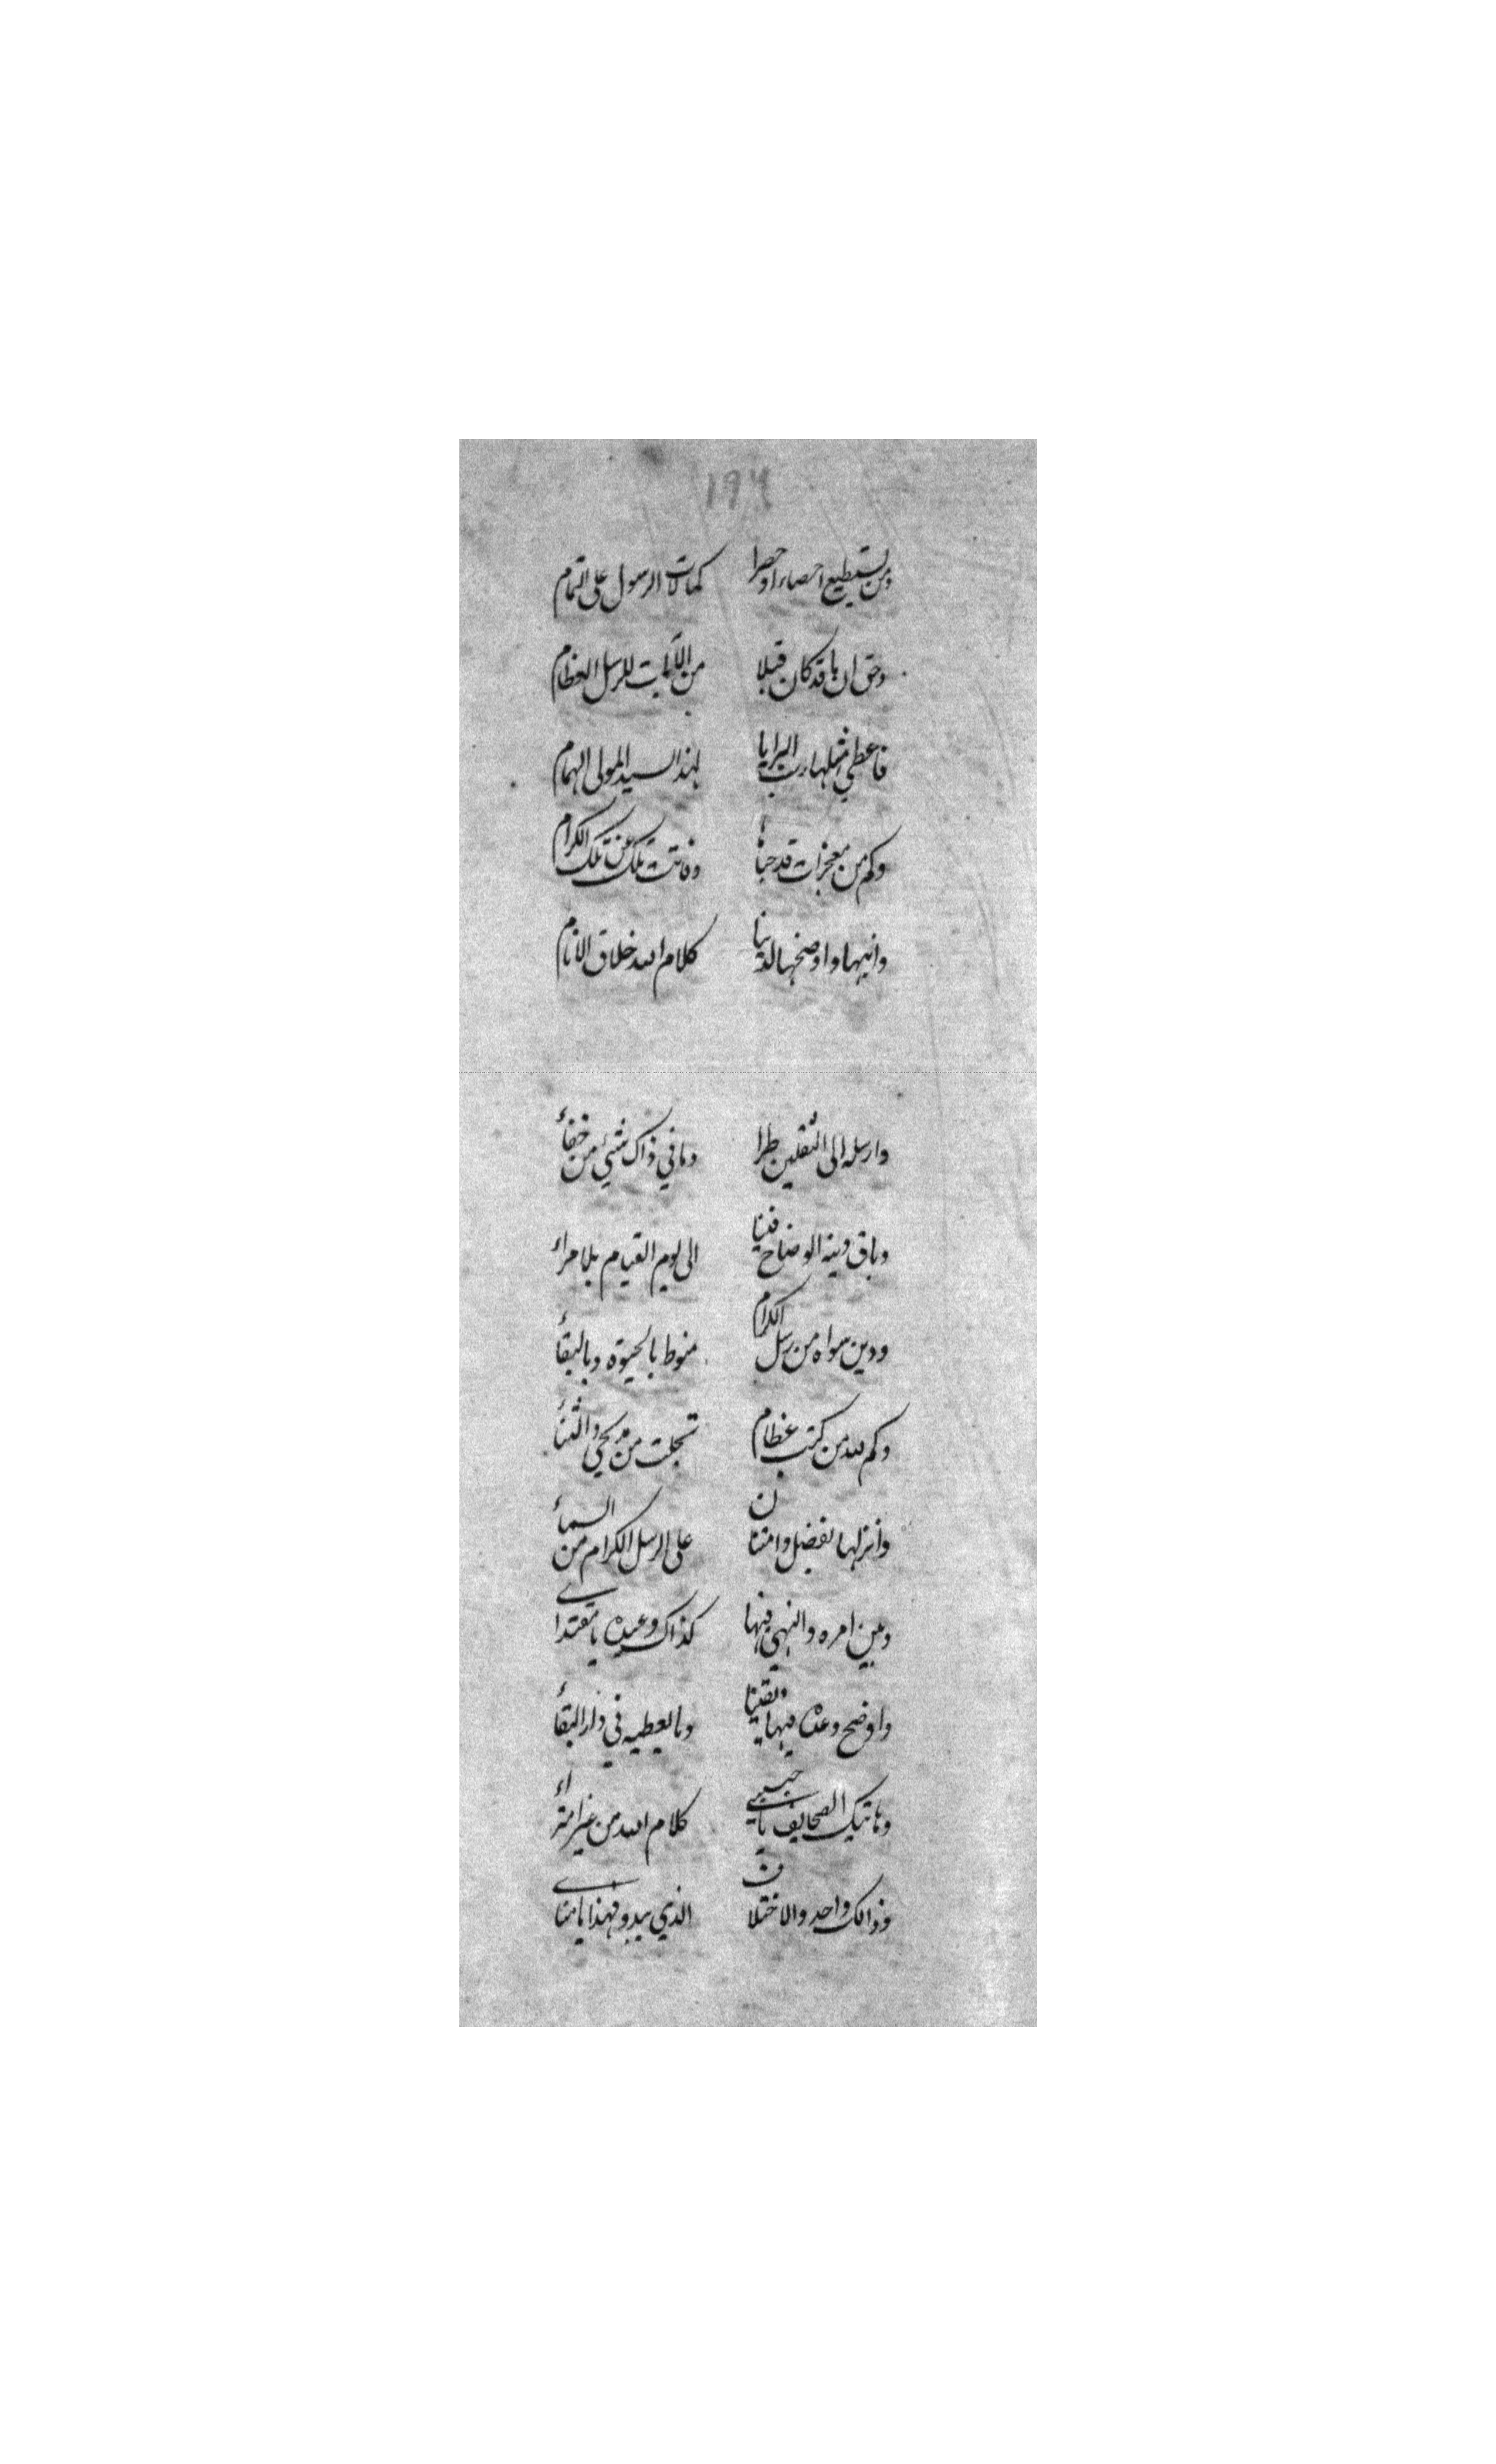 ١٩٤
ومن يستطيع احصاء او حصرا كمالات الرسول على التمام
وحق ان ما قد كان قبلا من الآيات للرسل العظام
فاعطي مثلها رب البرايا لهذا السيد المولى الهمام
وكم من معجزات قد حباها وفاتت تلك عن تلك الكرام
وابهاها واوضحها لدينا كلام الله خلاق الانام
وارسله الى الثقلين طرا وما في ذاك شيئ من خفاء
وباق دينه الوضاح فينا الى يوم القيام بلا مراء
ودين سواه من رسل الكرام منوط بالحيوة وبالبقاء
وكم لله من كتب عظام تجلت من مديحي والثناء
وانزلها بفضل وامتنان على الرسل الكرام من السماء
وبين امره والنهي فيها كذاك وعيده يا مقتداي
واوضح وعده فيها يقينا وما يعطيه في دار البقاء
وهاتيك الصحايف يا حبيبي كلام الله من غير امتراء
وذالك واحد والاختلاف الذي يبدو فهذا يا مناي